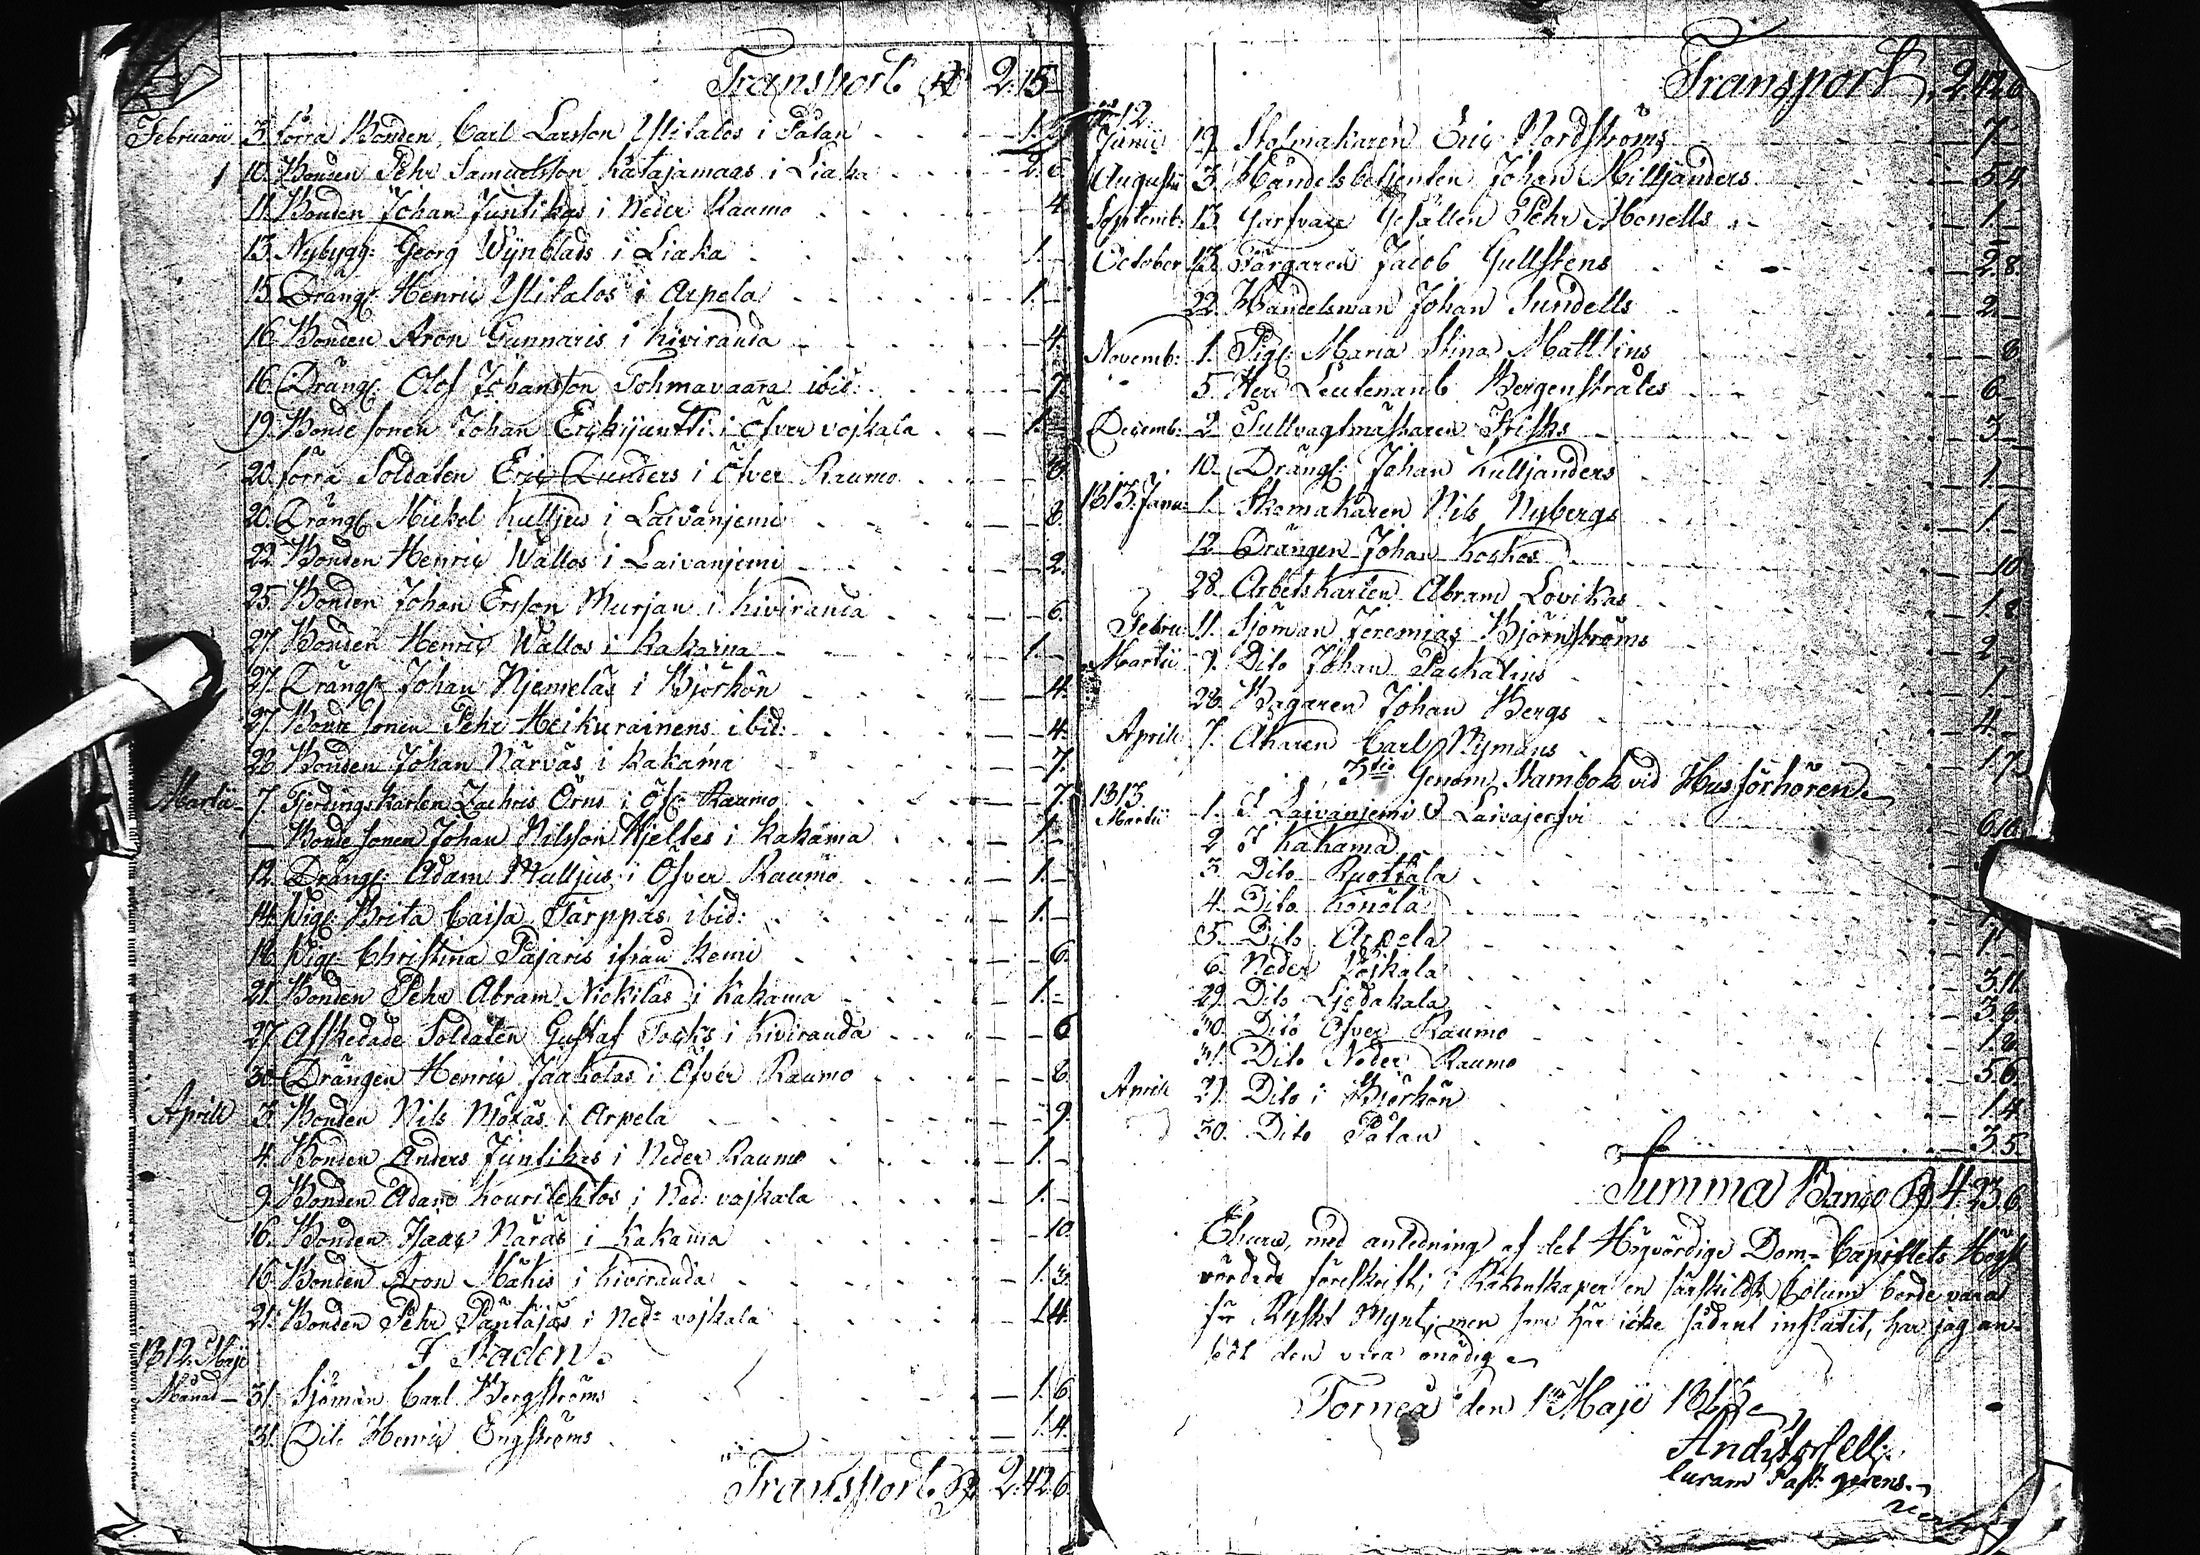 Transport Rd 2.15.–
Februarii 3. förra Bonden, Carl Larsson Ylitalos i Pålan – 1.
10. Bonden Pehr Samuelsson Katajamaas i Liaka – 2.6.
11. Bonden Johan Juntikas i Neder Raumo – 4.
13. Nybygg: Georg Wynblads i Liaka – 1.–
15. Drängs: Henric Ylitalos i Arpela – 1.–
16. Bonden Aron Gunnaris i Kiviranda – 4.
16. Drängs: Olof Johansson Tohmavaara ibid: – 7.
19. Bonde sonen Johan Erkkijuntti i Öfver vojkala – 1.–
20. förra Soldaten Eric Lunders i Öfver Raumo – 8.
20. Drängs: Mickel Kulljus i Laivanjemi – 8.
22. Bonden Henric Wallos i Laivanjemi – 2.
25. Bonden Johan Ersson Murjan i Kiviranda – 6.
27. Bonden Henric Wallos i Kakama – 1.–
27. Drängs: Johan Njemeläs i Björkön – 4.
27. Bonde sonen Pehr Heikurainens ibid: – 4.
28. Bonden Johan Närväs i Kakama – 7.
Martii – 7. Fjerdingskarlen Zachris Örns i Öfr Raumo – 7.
– Bonde sonen Johan Nilsson Kjelles i Kakama – 1.–
12. Drängs: Adam Malljus i Öfver Raumo – 1.–
14. Pigs: Brita Caisa Tärppäs ibid: – 1.–
18. Pigs: Christina Pajaris ifrån Kemi – 6.
21. Bonden Pehr Abram Nickilas i Kakama – 1.–
27. Afskedade Soldaten Gustaf Tocks i Kiviranda – 6
30. Drängen Henric Jaakolas i Öfver Raumo – 8.
Aprill 3. Bonden Nils Mjöläs i Arpela – 9.
4. Bonden Anders Juntikas i Neder Raumo – 1.–
9. Bonden Adam Kourilehtos i Ned: vojkala – 1.–
16. Bonden Isaac Naräs i Kakama – 10.
16. Bonden Aron Mäkis i Kiviranda – 1.3.
21. Bonden Pehr Pantajas i Ned: vojkala – 1.4.
1812. Maji I Staden
Månad – 31. Sjöman Carl Bergströms – 1.6.
31. Dito Henric Engströms – 1.4.
Transport Rd 2.42.6.
Transport, 2.42.6
1812.
Junii 19. Stolmakaren Eric Nordströms – 7.–
Augusti 3. Handelsbetjenten Johan Milljanders – 5.4.
Septemb: 13. Garfvare Gesällen Pehr Monells – 1.–
October 13. Färgaren Jacob Gullstens – 2.8.
22. Handelsman Johan Sundells – 2.–
Novemb: 1. Pigs: Maria Stina Mattlins – 8.
5. Herr Leutenant Bergenstråles – 6.–
Decemb: 2. Tullvagtmästaren Frisks – 3.–
10. Drängs: Johan Kulljanders – 1.–
1813. Janu: 1. Skomakaren Nils Nybergs – 1.–
12. Drängen Johan Koskos – 10.
28. Arbetskarlen Abram Lovikas – 1.8.
Febru: 11. Sjöman Jeremias Björnströms – 2.
Martii 7. Dito Johan Packalins – 1.–
28. Bagaren Johan Bergs – 4.–
Aprill 7. Åkaren Carl Nymans – 1.7.
3tio Genom Stambok vid Husförhören
1813
Martii 1. I Laivanjemi & Laivajerfvi – 6.10.
2. I Kakama
3. Dito Ruottala
4. Dito Könölä
5. Dito Arpela – 1.–
6. Neder Vojkala – 3.11.
29. Dito Ljedakala – 3.8.
30. Dito Öfver Raumo – 1.8.
31. Dito Neder Raumo – 5.6.
Aprill 29. Dito i Björkön – 1.4.
30. Dito Pålan – 3.5.
Summa Banco Rd 4.23.6.
Ehuru, med anledning af det Högvördige Dom-Capitlets Högst
vördade föreskrift, i Räkenskapen en särskildt Column borde vara
för Ryskt Mynt, men som här icke sådant influtit, har jag an-
sedt den vara onödig
Torneå den 1sta Maji 1813
And: Rosell
Curam Past: gerens.